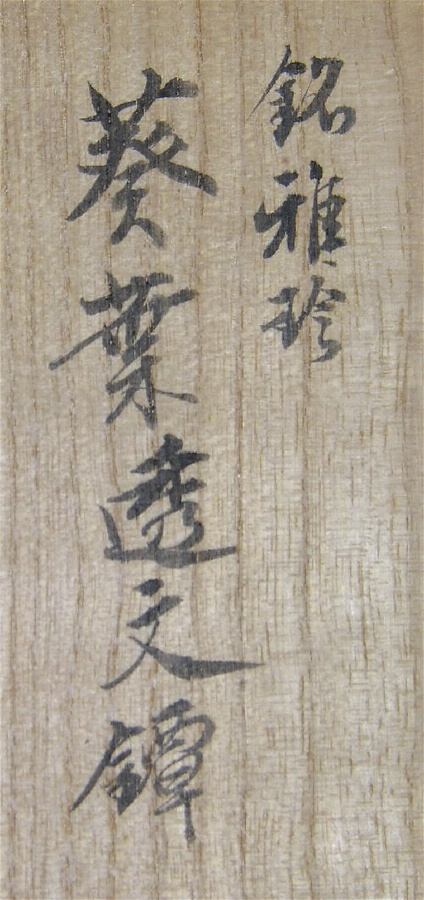 銘雅珍
葵葉透文鐔